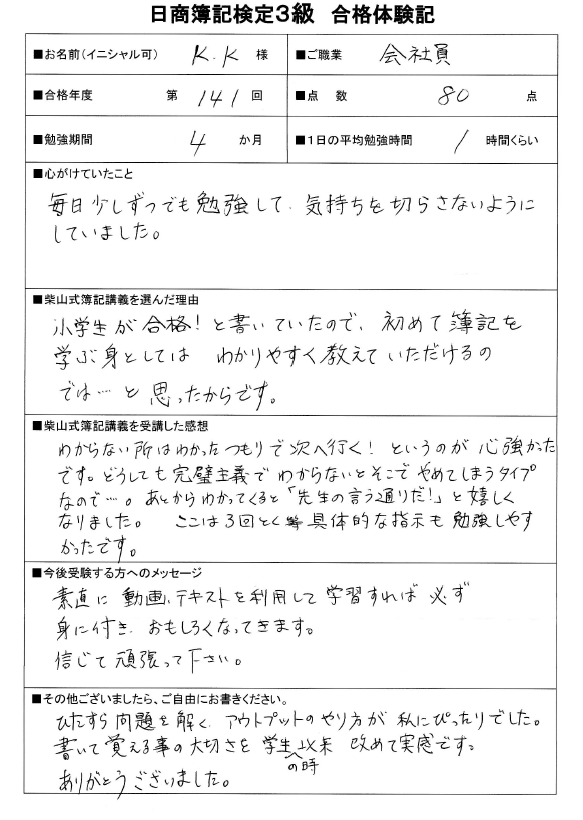 日商簿記検定3級 合格体験記
■お名前(イニシャル可) K.K 様 ■ご職業 会社員
■合格年度 第 141 回 ■点 数 80 点
■勉強期間 4 か月 ■1日の平均勉強時間 1 時間くらい
■心がけていたこと
毎日少しずつでも勉強して、気持ちを切らさないように
していました。
■柴山式簿記講義を選んだ理由
小学生が合格!と書いていたので、初めて簿記を
学ぶ身としては わかりやすく教えていただけるの
では…と思ったからです。
■柴山式簿記講義を受講した感想
わからない所はわかったつもりで次へ行く!というのが心強かった
です。どうしても完璧主義でわからないとそこでやめてしまうタイプ
なので…。あとからわかってくると「先生の言う通りだ!」と嬉しく
なりました。 ここは3回とく等具体的な指示も勉強しやす
かったです。
■今後受験する方へのメッセージ
素直に動画、テキストを利用して学習すれば必ず
身に付き、おもしろくなってきます。
信じて頑張って下さい。
■その他ございましたら、ご自由にお書きください。
ひたすら問題を解く、アウトプットのやり方が私にぴったりでした。
書いて覚える事の大切さを学生の時以来 改めて実感です。
ありがとうございました。